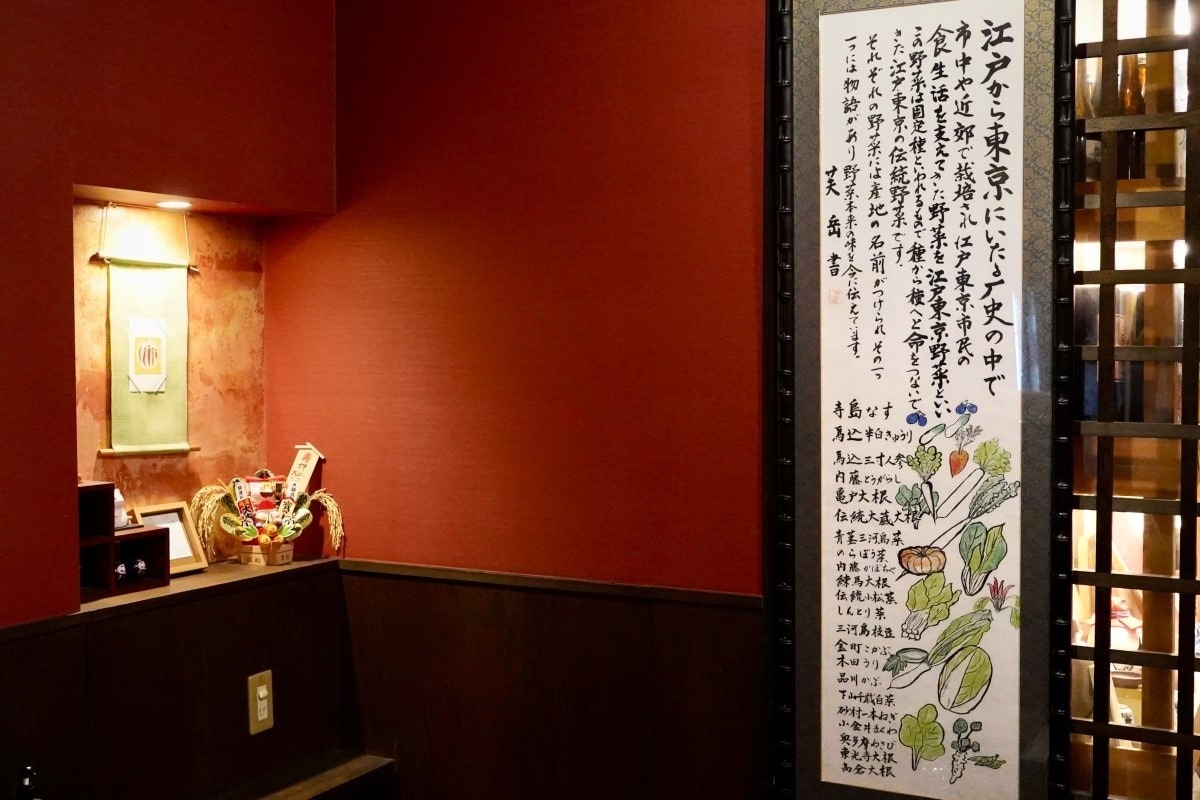 江戸から東京にいたる歴史の中で
市中や近郊で栽培され江戸東京市民の
食生活を支えていた野菜を江戸東京野菜といい
この野菜は固定種といわれるもので種から種へと命をつないで
きた江戸東京の伝統野菜です。
それぞれの野菜には産地の名前がつけられ、その一つ
一つには物語があり野菜本来の味を今に伝えています。
岳 書
寺島なす
馬込半白きゅうり
馬込三寸人参
内藤とうがらし
亀戸大根
伝統大蔵大根
青茎三河島菜
のらぼう菜
内藤かぼちゃ
練馬大根
伝統小松菜
しんとり菜
三河島枝豆
金町こかぶ
本田うり
品川かぶ
下山千歳白菜
砂村一本ねぎ
小金井まくわ
奥多摩わさび
東光寺大根
高倉大根